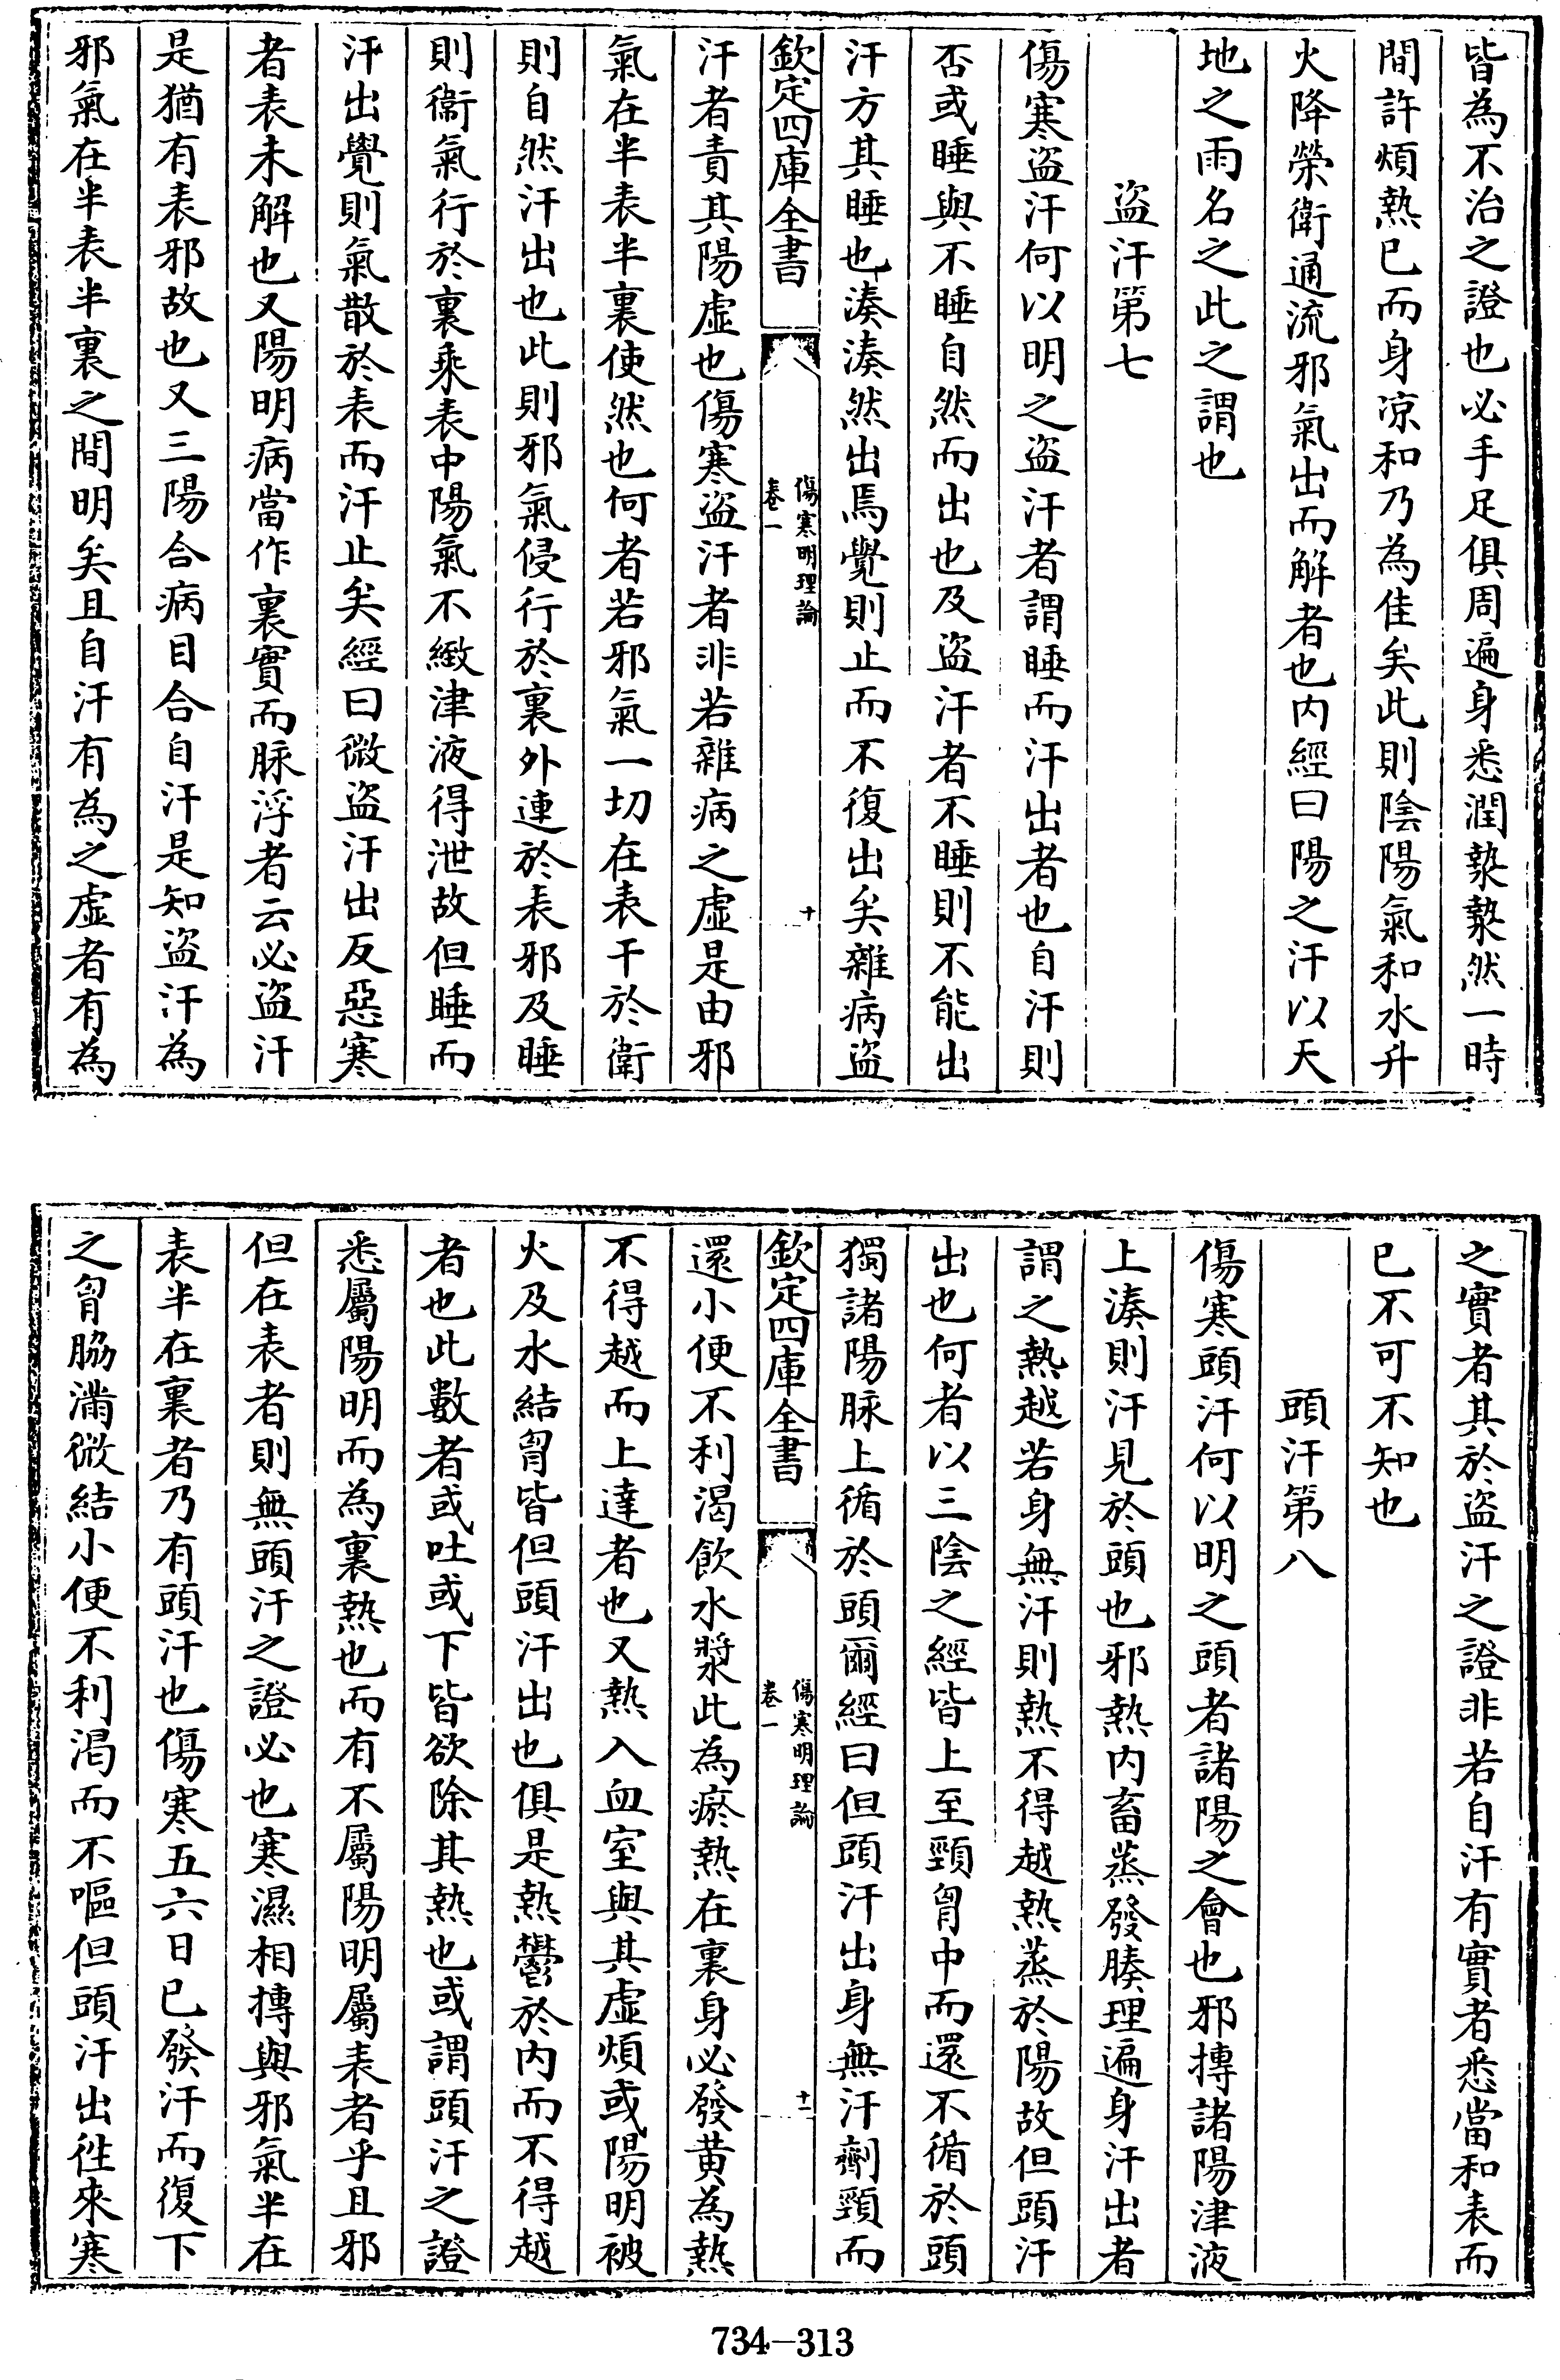 皆為不治之證也必手足俱周遍身悉潤漐漐然一時
間許煩熱已而身凉和乃為佳矣此則陰陽氣和水升
火降榮衛通流邪氣出而解者也内經曰陽之汗以天
地之雨名之此之謂也
盜汗第七
傷寒盜汗何以明之盜汗者謂睡而汗出者也自汗則
否或睡與不睡自然而出也及盜汗者不睡則不能出
汗方其睡也湊湊然出焉覺則止而不復出矣雜病盜
欽定四庫全書
傷寒明理論
卷一
十
汗者責其陽虛也傷寒盜汗者非若雜病之虛是由邪
氣在半表半裏使然也何者若邪氣一切在表干於衛
則自然汗出也此則邪氣侵行於裏外連於表邪及睡
則衛氣行於裏乘表中陽氣不緻津液得泄故但睡而
汗出覺則氣散於表而汗止矣經曰微盜汗出反惡寒
者表未解也又陽明病當作裏實而脉浮者云必盜汗
是猶有表邪故也又三陽合病目合自汗是知盜汗為
邪氣在半表半裏之間明矣且自汗有為之虛者有為
之實者其於盜汗之證非若自汗有實者悉當和表而
已不可不知也
頭汗第八
傷寒頭汗何以明之頭者諸陽之會也邪摶諸陽津液
上湊則汗見於頭也邪熱内畜蒸發腠理遍身汗出者
謂之熱越若身無汗則熱不得越熱蒸於陽故但頭汗
出也何者以三陰之經皆上至頸胷中而還不循於頭
獨諸陽脉上循於頭爾經曰但頭汗出身無汗劑頸而
欽定四庫全書
傷寒明理論
卷一
十一
還小便不利渴飲水漿此為瘀熱在裏身必發黄為熱
不得越而上達者也又熱入血室與其虛煩或陽明被
火及水結胷皆但頭汗出也俱是熱鬱於内而不得越
者也此數者或吐或下皆欲除其熱也或謂頭汗之證
悉屬陽明而為裏熱也而有不屬陽明屬表者乎且邪
但在表者則無頭汗之證必也寒濕相摶與邪氣半在
表半在裏者乃有頭汗也傷寒五六日已發汗而復下
之胷脇滿微結小便不利渴而不嘔但頭汗出徃來寒
734-313